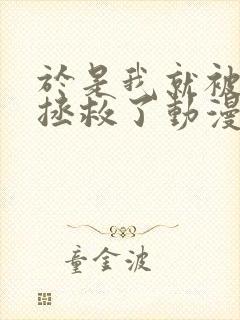 於是我就被
拯救了動漫
童金波